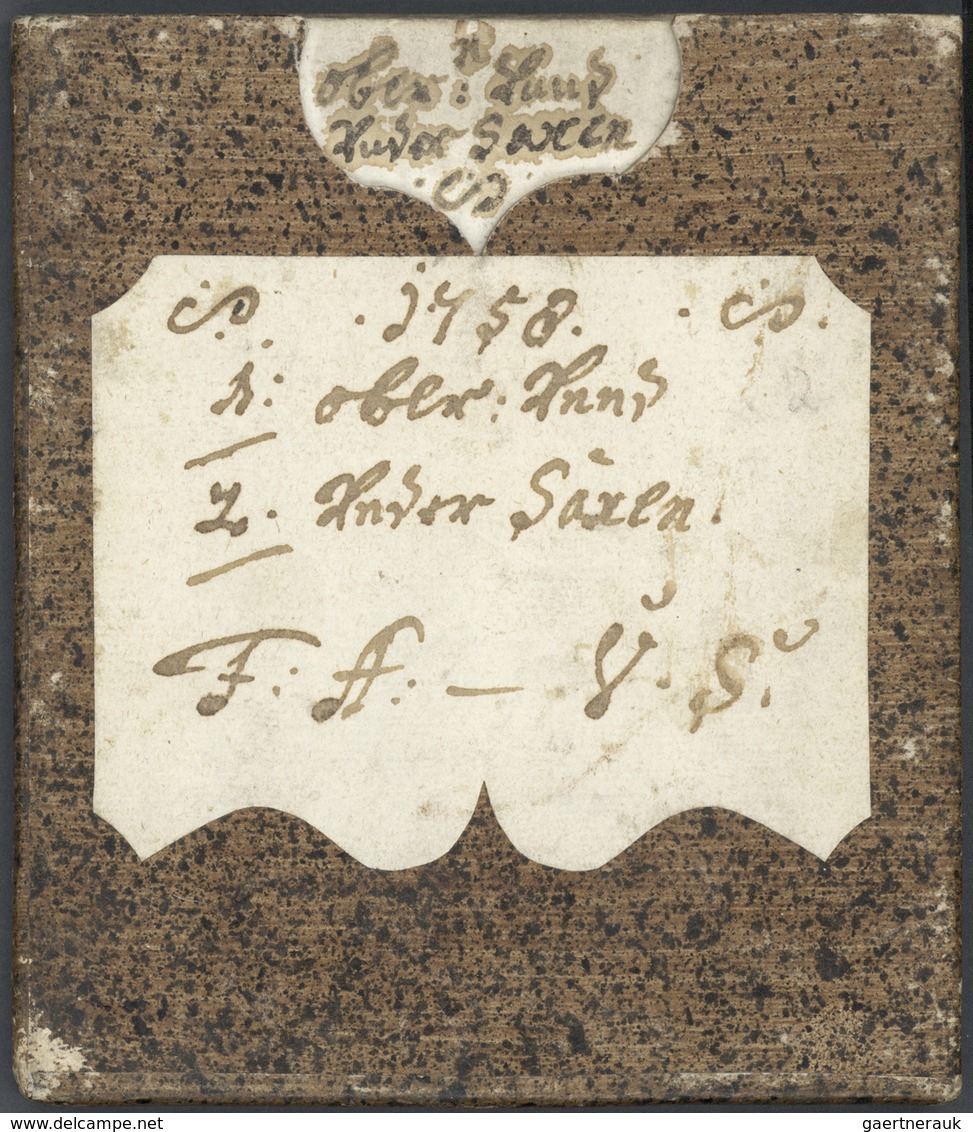 n
ober: Vund
Vnder Saxen
S
S. · 1758. · S.
1: ober: Vnnd
2. Vnder Säxen.
F: A: — V. S.
delcampe.net
gaertnerauk